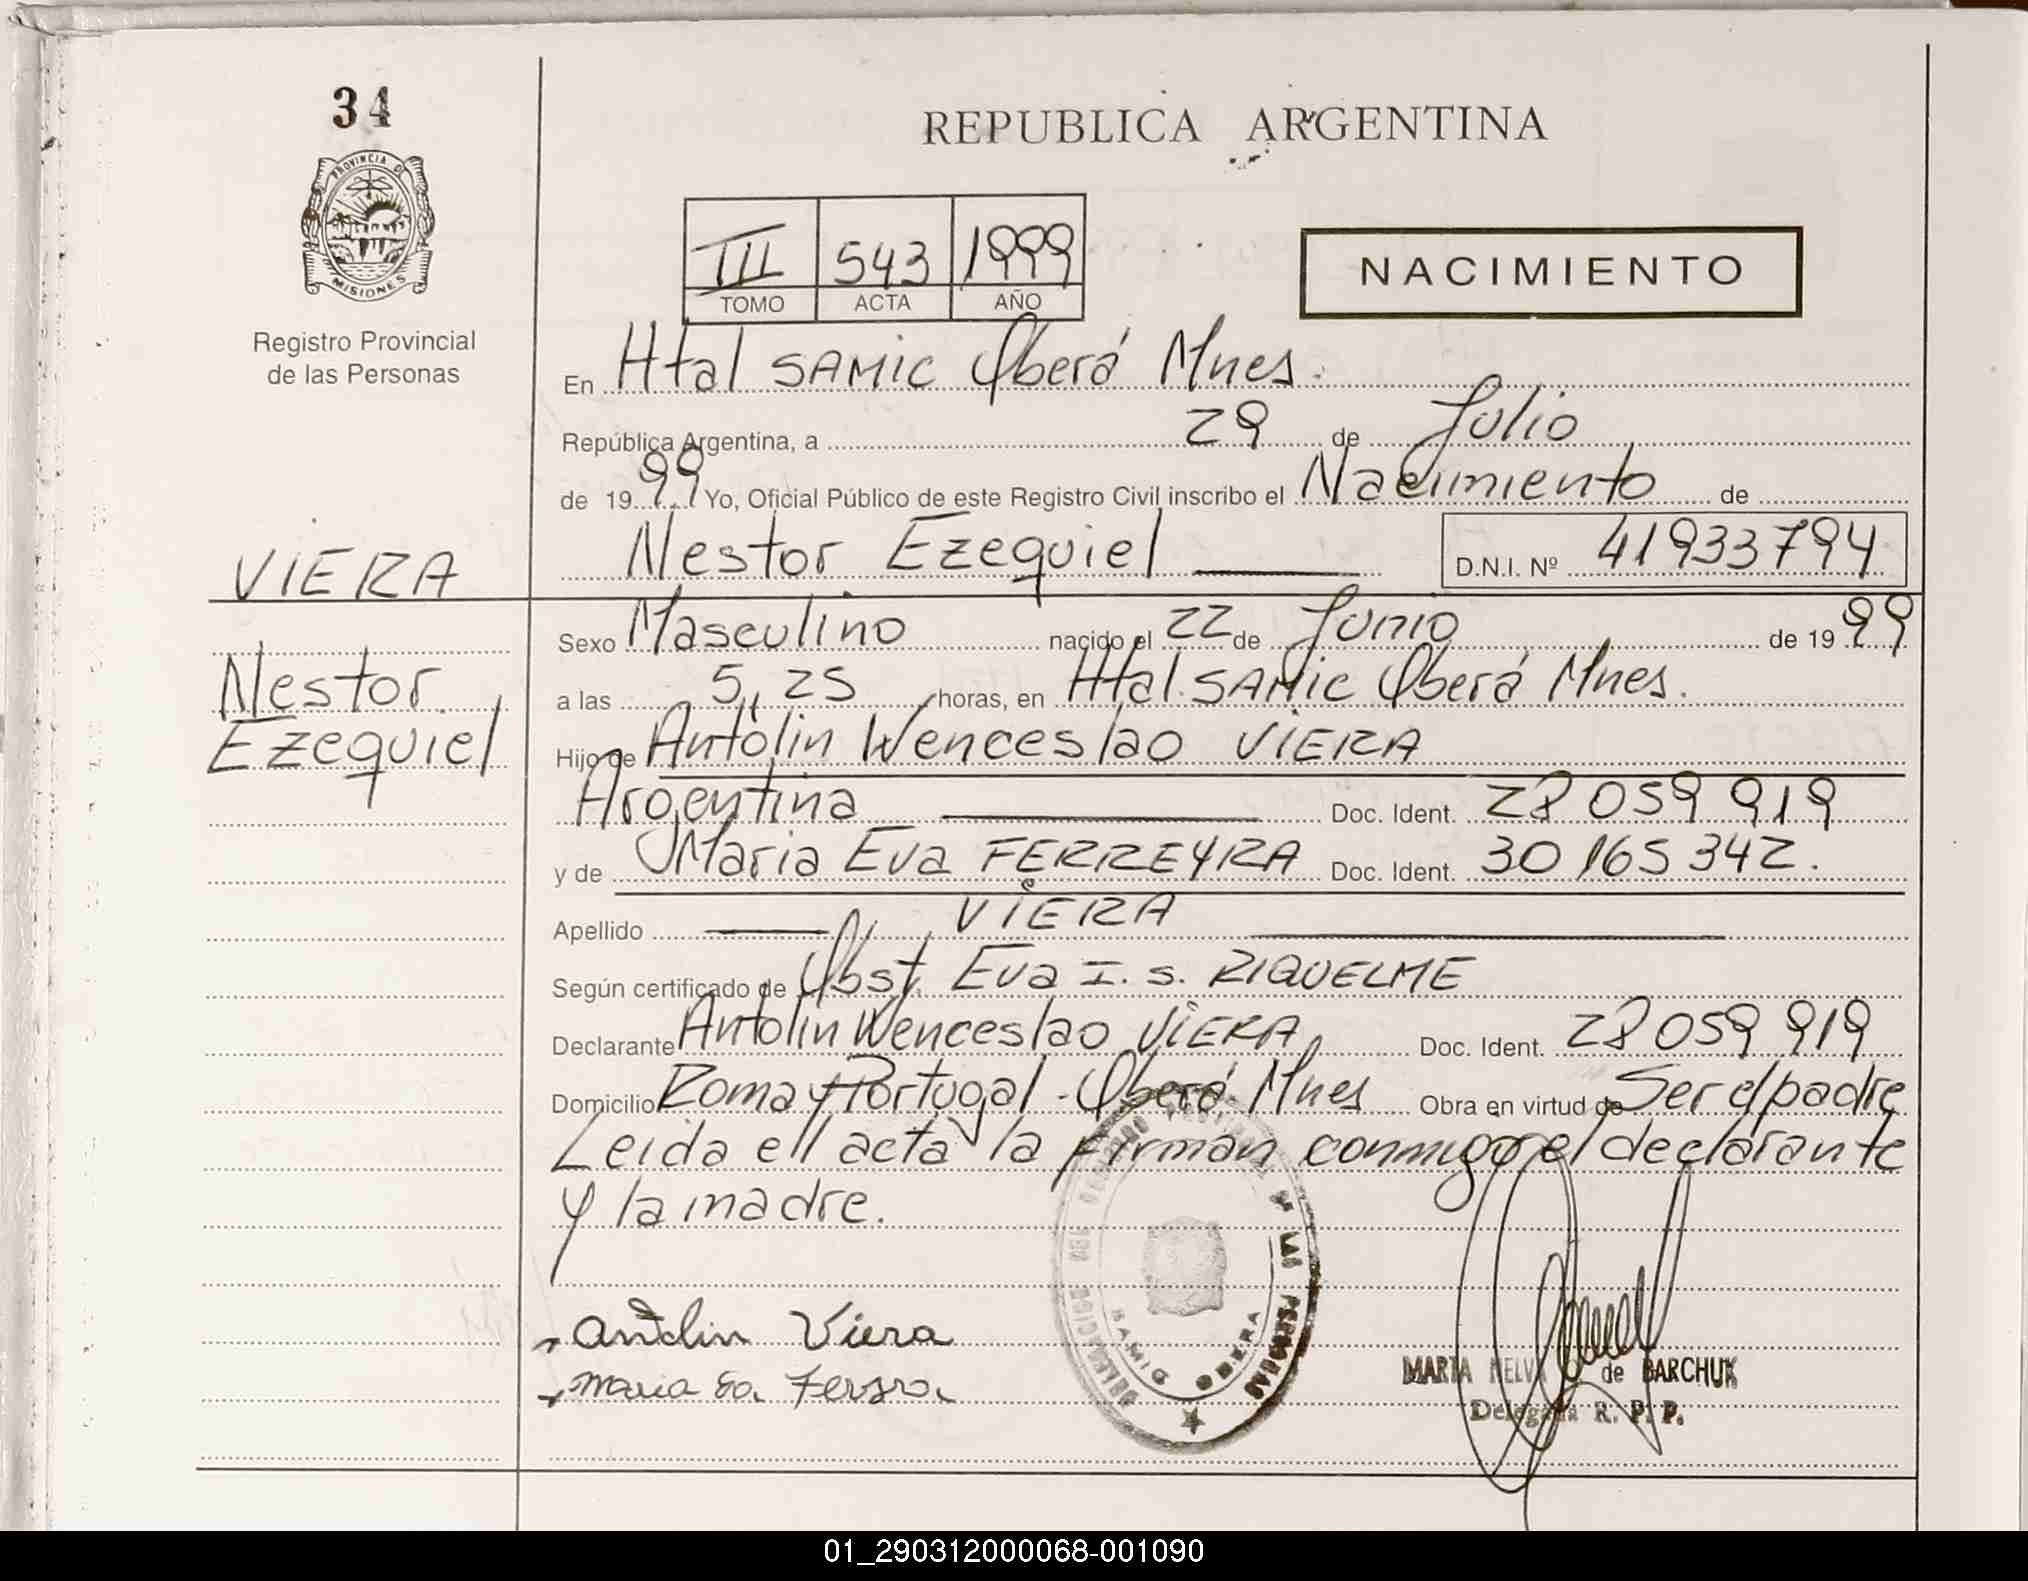 34
PROVINCIA DE
MISIONES
Registro Provincial
de las Personas
VIERA
Nestor
Ezequiel
REPUBLICA ARGENTINA
III 543 1999
TOMO ACTA AÑO
NACIMIENTO
En Htal SAMIC Oberá Mnes.
República Argentina, a 29 de Julio
de 1999 Yo, Oficial Público de este Registro Civil inscribo el Nacimiento de
Nestor Ezequiel D.N.I. Nº 41933794
Sexo Masculino nacido el 22 de Junio de 1999
a las 5,25 horas, en Htal. SAMIC Oberá Mnes.
Hijo de Antolin Wenceslao VIERA
Argentina Doc. Ident. 28 059 919
y de Maria Eva FERREYRA Doc. Ident. 30 165 342.
Apellido VIERA
Según certificado de Obst. Eva I. S. RIQUELME
Declarante Antolin Wenceslao VIERA Doc. Ident. 28 059 919
Domicilio Roma y Portugal - Oberá - Mnes Obra en virtud de Ser el padre
Leida ell acta la firman conmigo el declarante
y la madre.
Antolin Viera
Maria
DELEGACION DEL REGISTRO PROVINCIAL DE LAS PERSONAS
SAMIC OBERA
MARTA NELVA de BARCHUK
Delegada R. P. P.
01_290312000068-001090